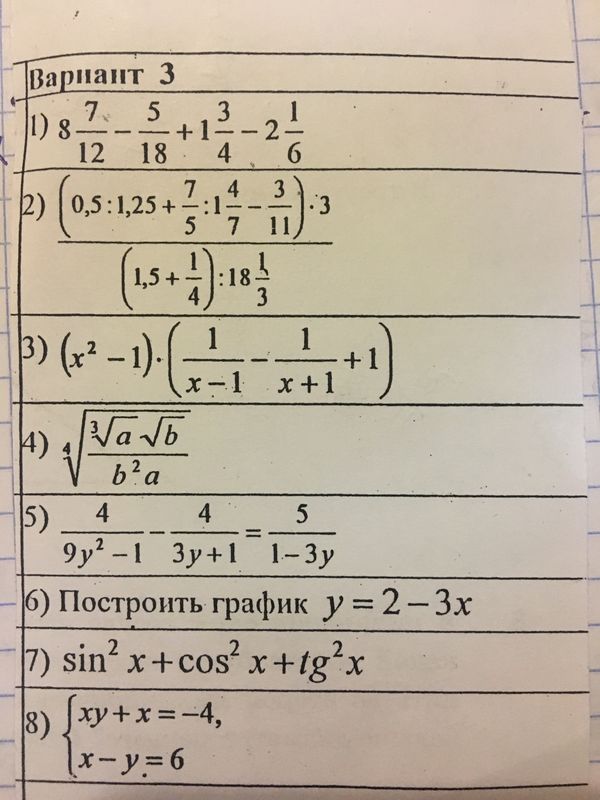 Вариант 3
1) 8 7/12 − 5/18 + 1 3/4 − 2 1/6
2) ((0,5 : 1,25 + 7/5 : 1 4/7 − 3/11) · 3) / ((1,5 + 1/4) : 18 1/3)
3) (x² − 1) · (1/(x − 1) − 1/(x + 1) + 1)
4) ∜((∛a √b)/(b²a))
5) 4/(9y² − 1) − 4/(3y + 1) = 5/(1 − 3y)
6) Построить график y = 2 − 3x
7) sin² x + cos² x + tg² x
8) { xy + x = −4,
x − y = 6